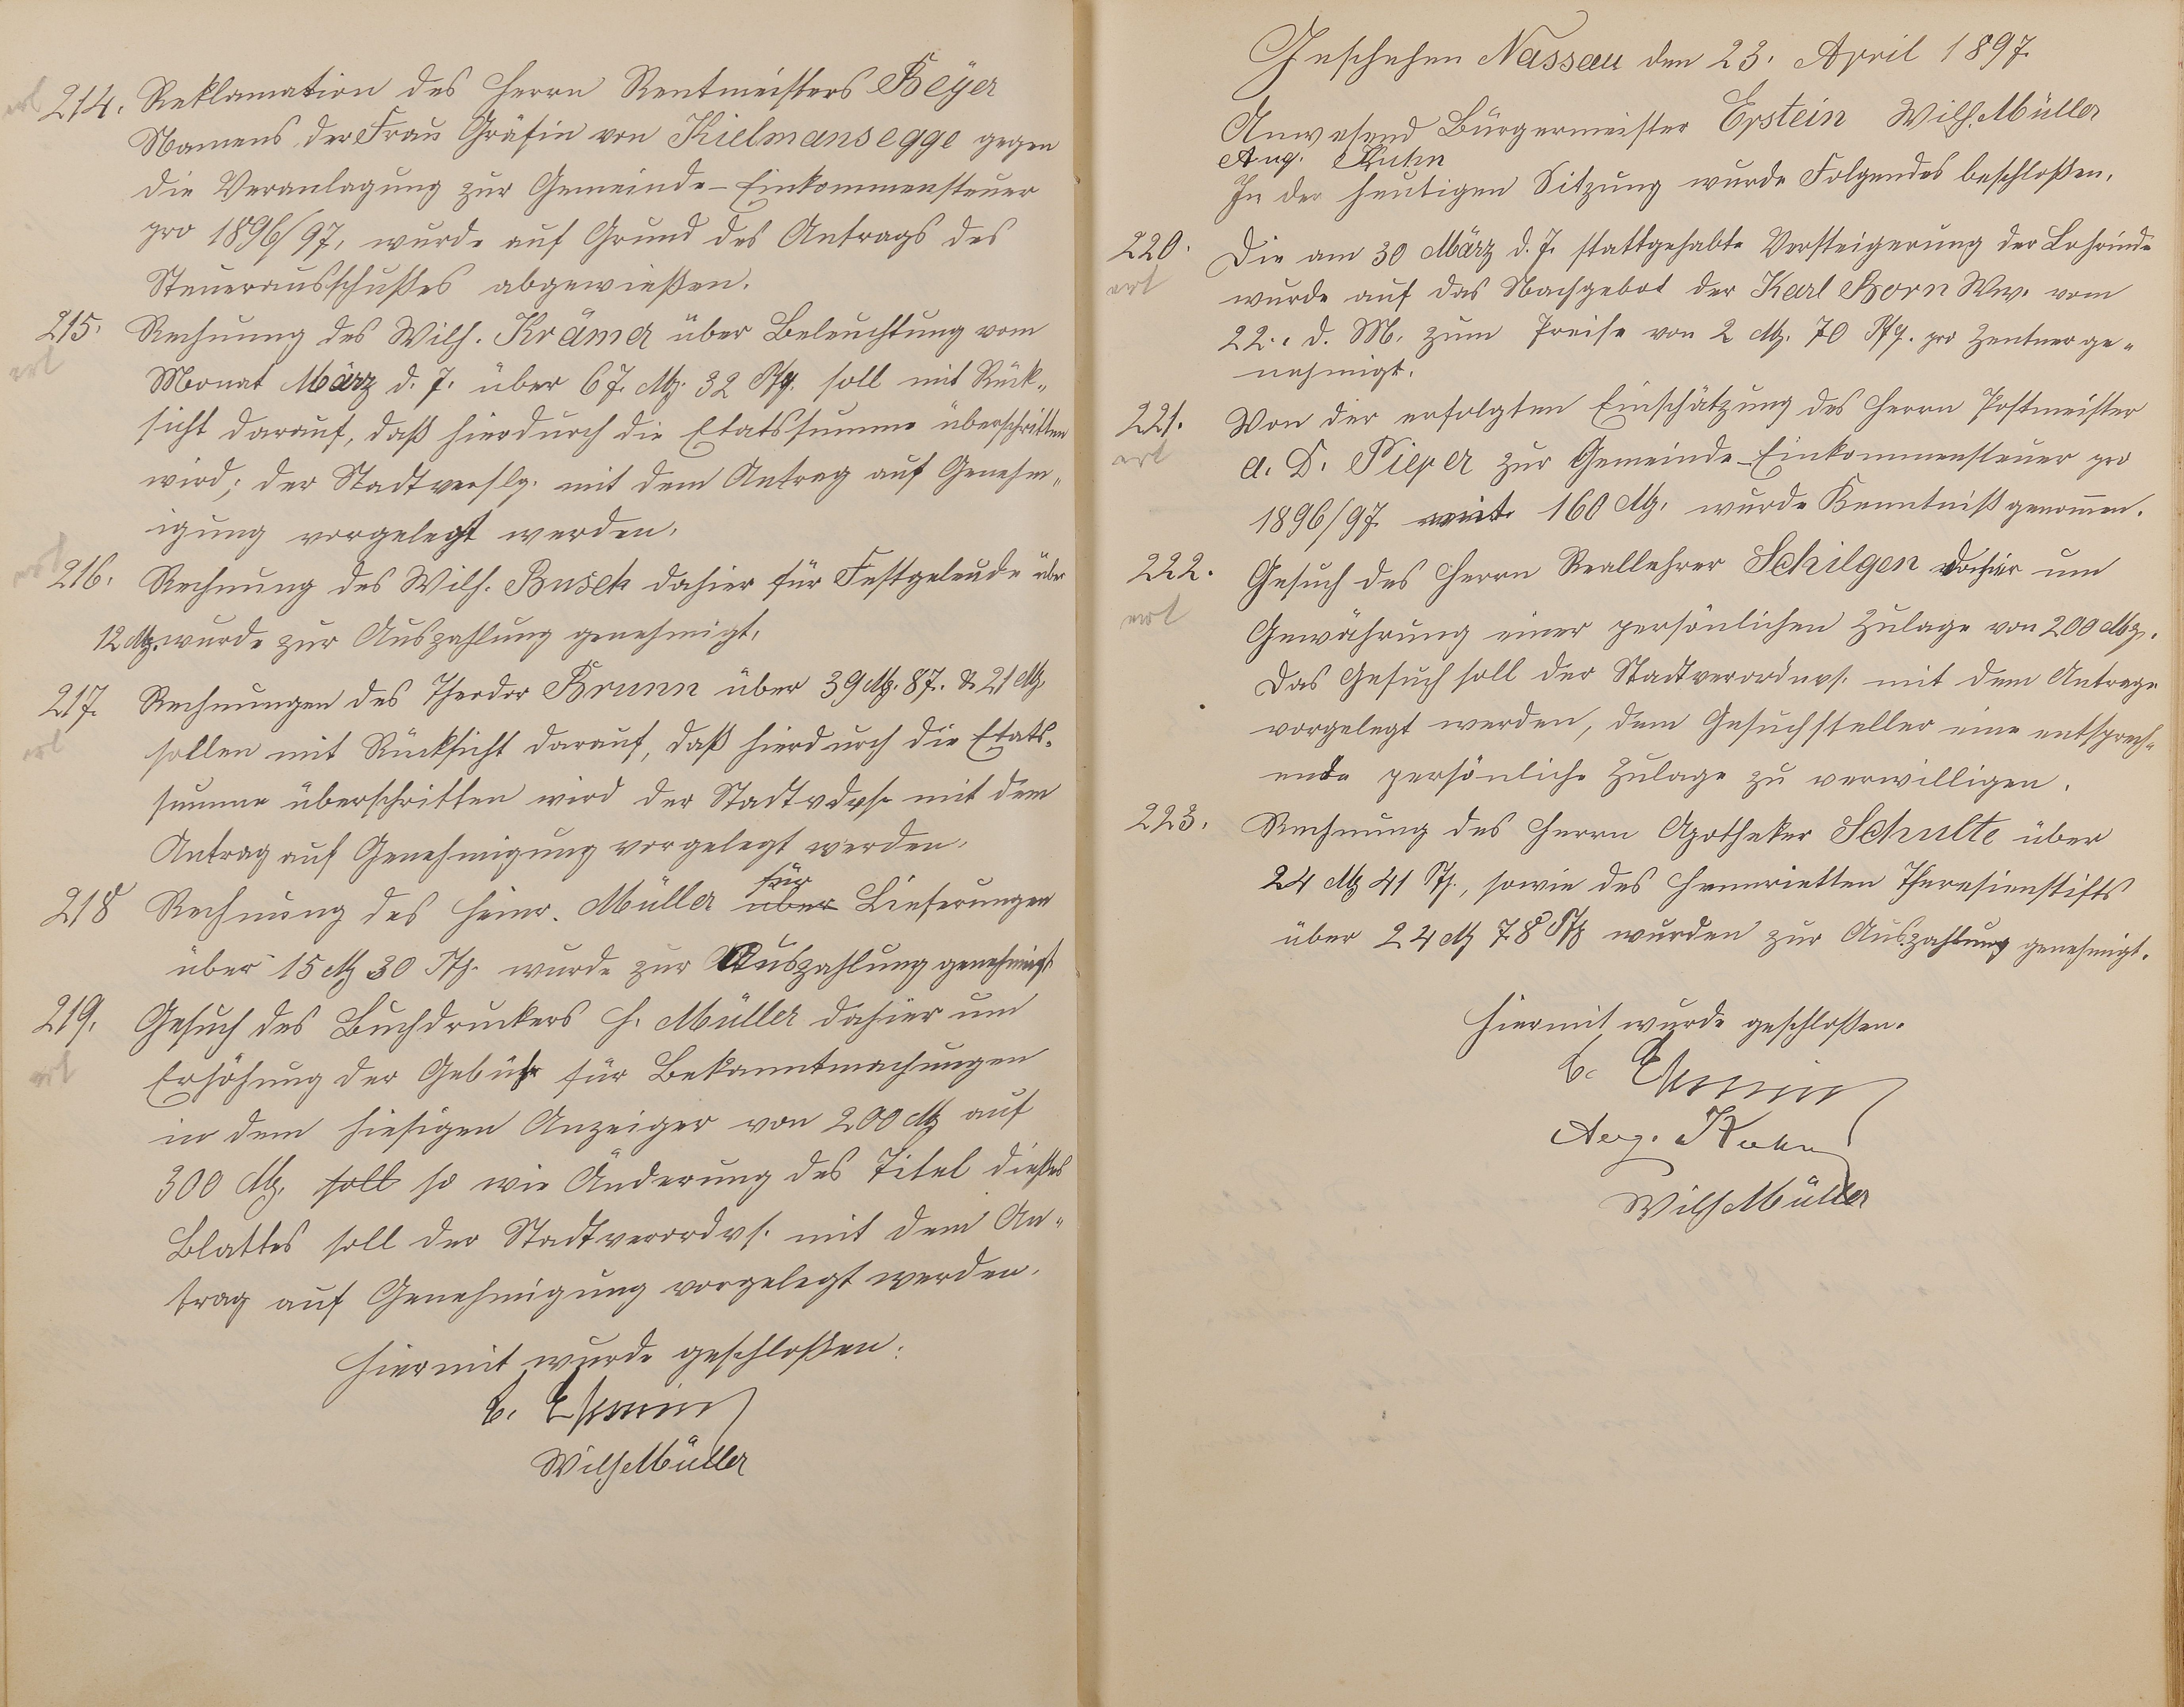 214. Reklamation des Herrn Rentmeisters Beyer
Namens der Frau Gräfin von Kielmansegge gegen
die Veranlagung zur Gemeinde-Einkommensteuer
pro 1896/97, wurde auf Grund des Antrags des
Steuerausschußes abgewießen.
215. Rechnung des Wilh. Krämer über Beleuchtung vom
Monat März d. J. über 67. M. 32 Pfg. soll mit Rück-
sicht darauf, daß hierdurch die Etatssumme überschritten
wird; der Stadtverslg. mit dem Antrag auf Genehm-
igung vorgelegt werden.
216. Rechnung des Wilh. Busch dahier für Festgeleude über
12 M. wurde zur Auszahlung genehmigt.
217. Rechnungen des Theodor Brunn über 39 M. 87. & 21 M.
sollen mit Rücksicht darauf, daß hierdurch die Etats-
summe überschritten wird der Stadtvdvs. mit dem
Antrag auf Genehmigung vorgelegt werden.
218 Rechnung des Heinr. Müller über für Lieferungen
über 15 M 30 Pfg. wurde zur Auszahlung genehmigt
219. Gesuch des Buchdruckers H. Müller dahier um
Erhöhung der Gebühr für Bekanntmachungen
in dem hiesigen Anzeiger von 200 M auf
300 M. soll so wie Änderung des Titel dießes
Blattes soll der Stadtverordvs. mit dem An-
trag auf Genehmigung vorgelegt werden.
Hiermit wurde geschloßen:
Wilh Müller
Geschehen Nassau den 23. April 1897.
Anwesend Bürgermeister Epstein Wilh. Müller
Aug. Kuhn
In der heutigen Sitzung wurde Folgendes beschloßen.
220. Die am 30 März d. J. stattgehabte Versteigerung der Lohrinde
erl
wurde auf das Nachgebot der Karl Born Ww. vom
22. d. M. zum Preise von 2 M. 70 Pfg. pro Zentner ge-
nehmigt.
221. Von der erfolgten Einschätzung des Herrn Postmeister
erl
a. D. Pieper zur Gemeinde-Einkommensteuer pro
1896/97 mit 160 M. wurde Kenntniß genommen.
222. Gesuch des Herrn Reallehrer Schilgen dahier um
erl
Gewährung einer persönlichen Zulage von 200 M.
Das Gesuch soll der Stadtverordnvs. mit dem Antrage
vorgelegt werden, dem Gesuchsteller eine entsprech-
ende persönliche Zulage zu verwilligen.
223. Rechnung des Herrn Apotheker Schulte über
24 M 41 Pf., sowie des Henrietten Theresienstifts
über 24 M 78 Pfg wurden zur Auszahlung genehmigt.
Hiermit wurde geschloßen.
Aug. Kuhn
Wilh Müller